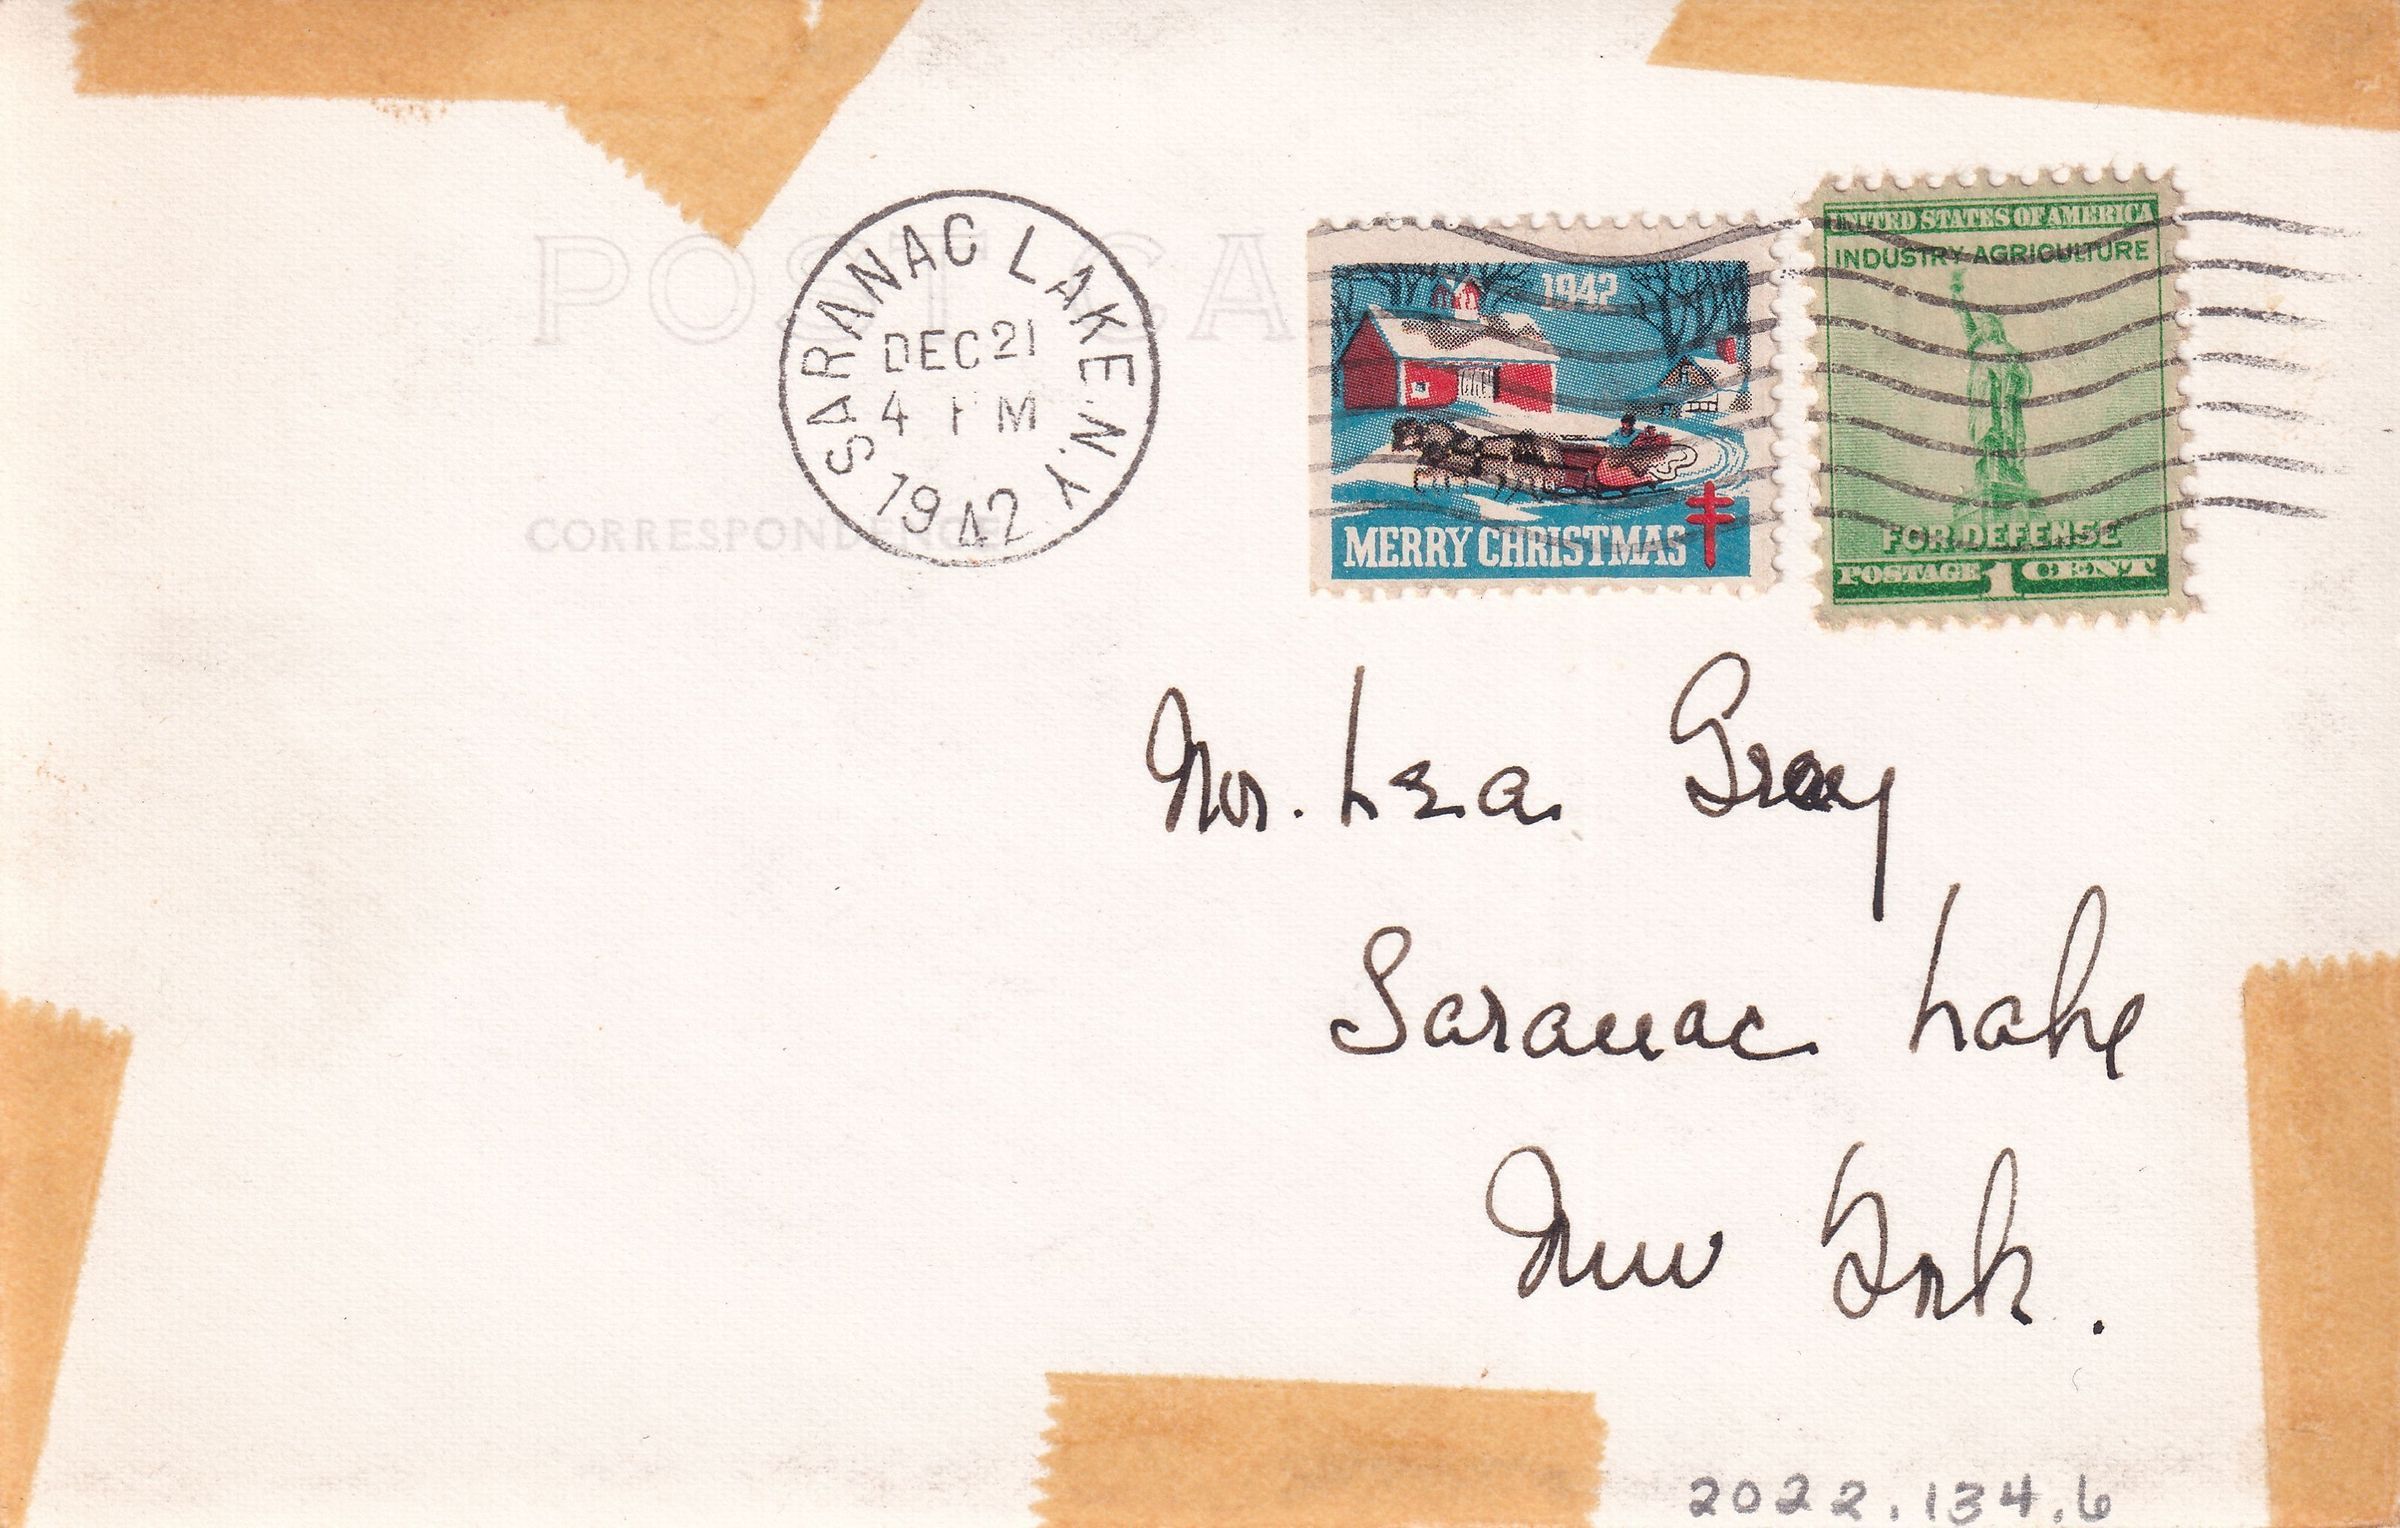 POST CA
CORRESPONDENCE
SARANAC LAKE, N.Y.
DEC 21
4 PM
1942
1942
MERRY CHRISTMAS
UNITED STATES OF AMERICA
INDUSTRY-AGRICULTURE
FOR DEFENSE
POSTAGE 1 CENT
Mr. Lea Gray
Saranac Lake
New York.
2022.134.6